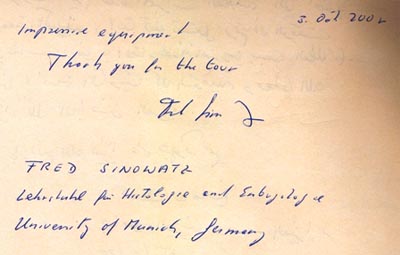 3. Okt 2002
Impressive equipment
Thank you for the tour
FRED SINOWATZ
Lehrstuhl für Histologie and Embryologie
University of Munich, Germany